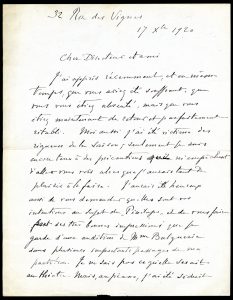 32 Rue des Vignes
17 Xbre 1920
Cher Directeur et ami
J'ai appris récemment, et en même
temps que vous aviez été souffrant, que
vous vous étiez absenté, mais que vous
étiez maintenant de retour et parfaitement
rétabli. Moi aussi j'ai été victime des
rigueurs de la Saison; seulement je suis
encore tenu à des précautions qui m'empêchent
d'aller vous voir alors que j'aurais tant de
plaisir à le faire. J'aurais été heureux
aussi de vous demander quelles sont vos
intentions au sujet de Pénélope, et de vous faire
part des très bonnes impressions que je
garde d'une audition de Mme Balguerie
dans plusieurs importants passages de ma
partition. Je ne sais pas ce qu'elle serait
au théâtre mais, au piano, j'ai été séduit